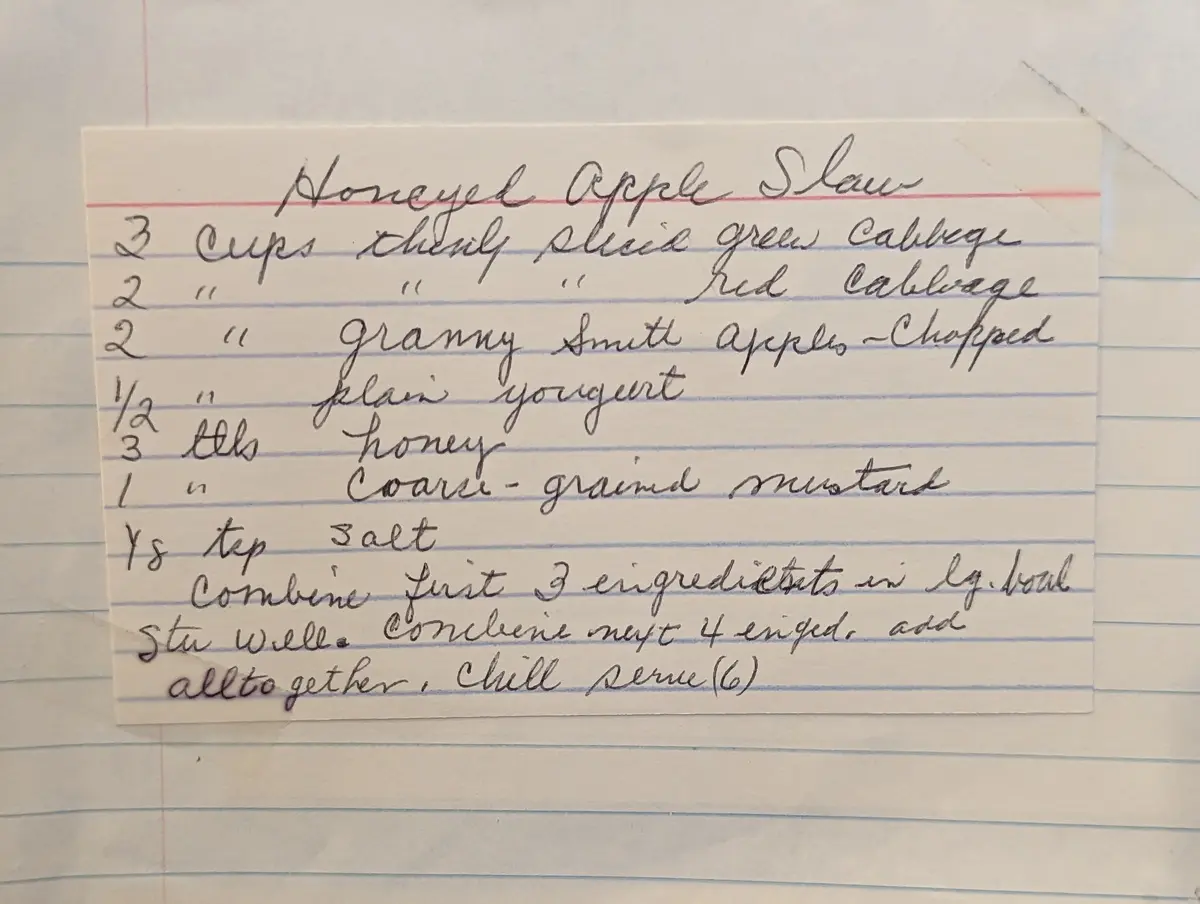 Honeyed Apple Slaw
3 Cups thinly sliced green Cabbage
2 " " " red Cabbage
2 " granny Smith apples - Chopped
1/2 " plain yougurt
3 tbls honey
1 " Coarse-grained mustard
1/8 tsp salt
Combine first 3 engredients in lg. bowl
Stir well. Combine next 4 enged. add
alltogether. Chill serve (6)